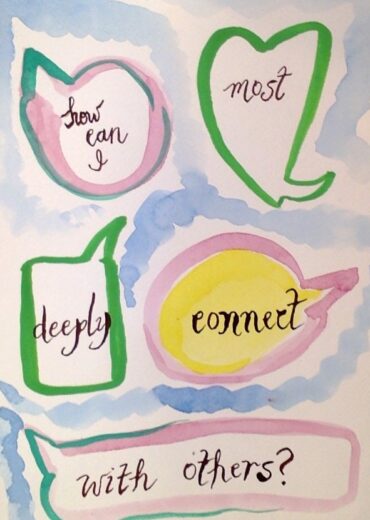 how
can
I
most
deeply
connect
with others?